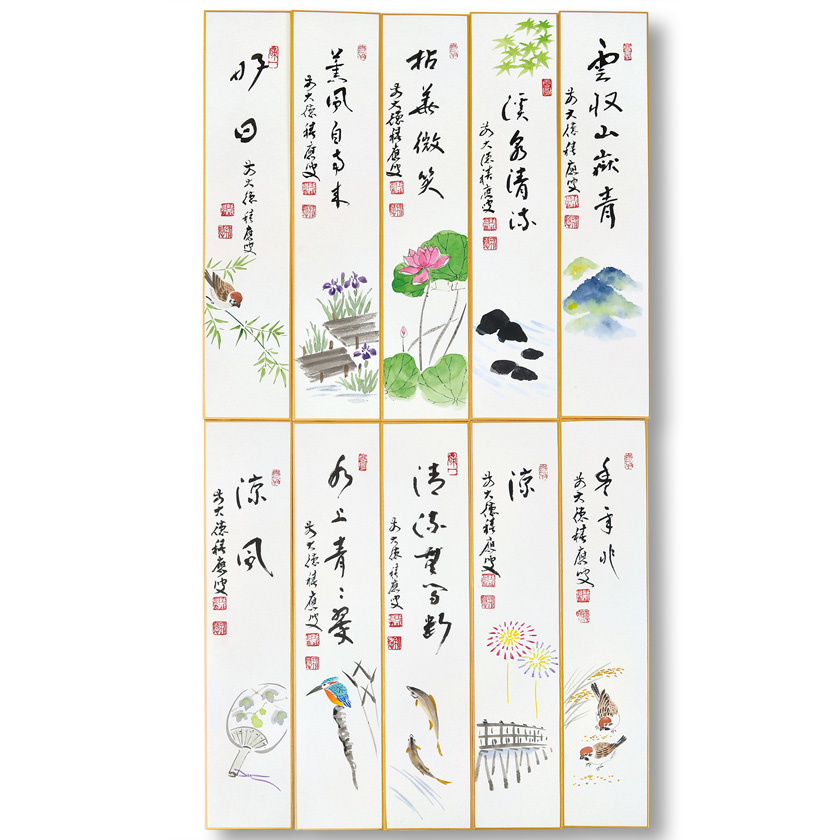 雲収山嶽青
前大徳積應叟
渓泉清流
前大徳積應叟
拈華微笑
前大徳積應叟
薫風自南来
前大徳積應叟
好日
前大徳積應叟
豊年兆
前大徳積應叟
涼
前大徳積應叟
清流無間断
前大徳積應叟
水上青々翠
前大徳積應叟
涼風
前大徳積應叟